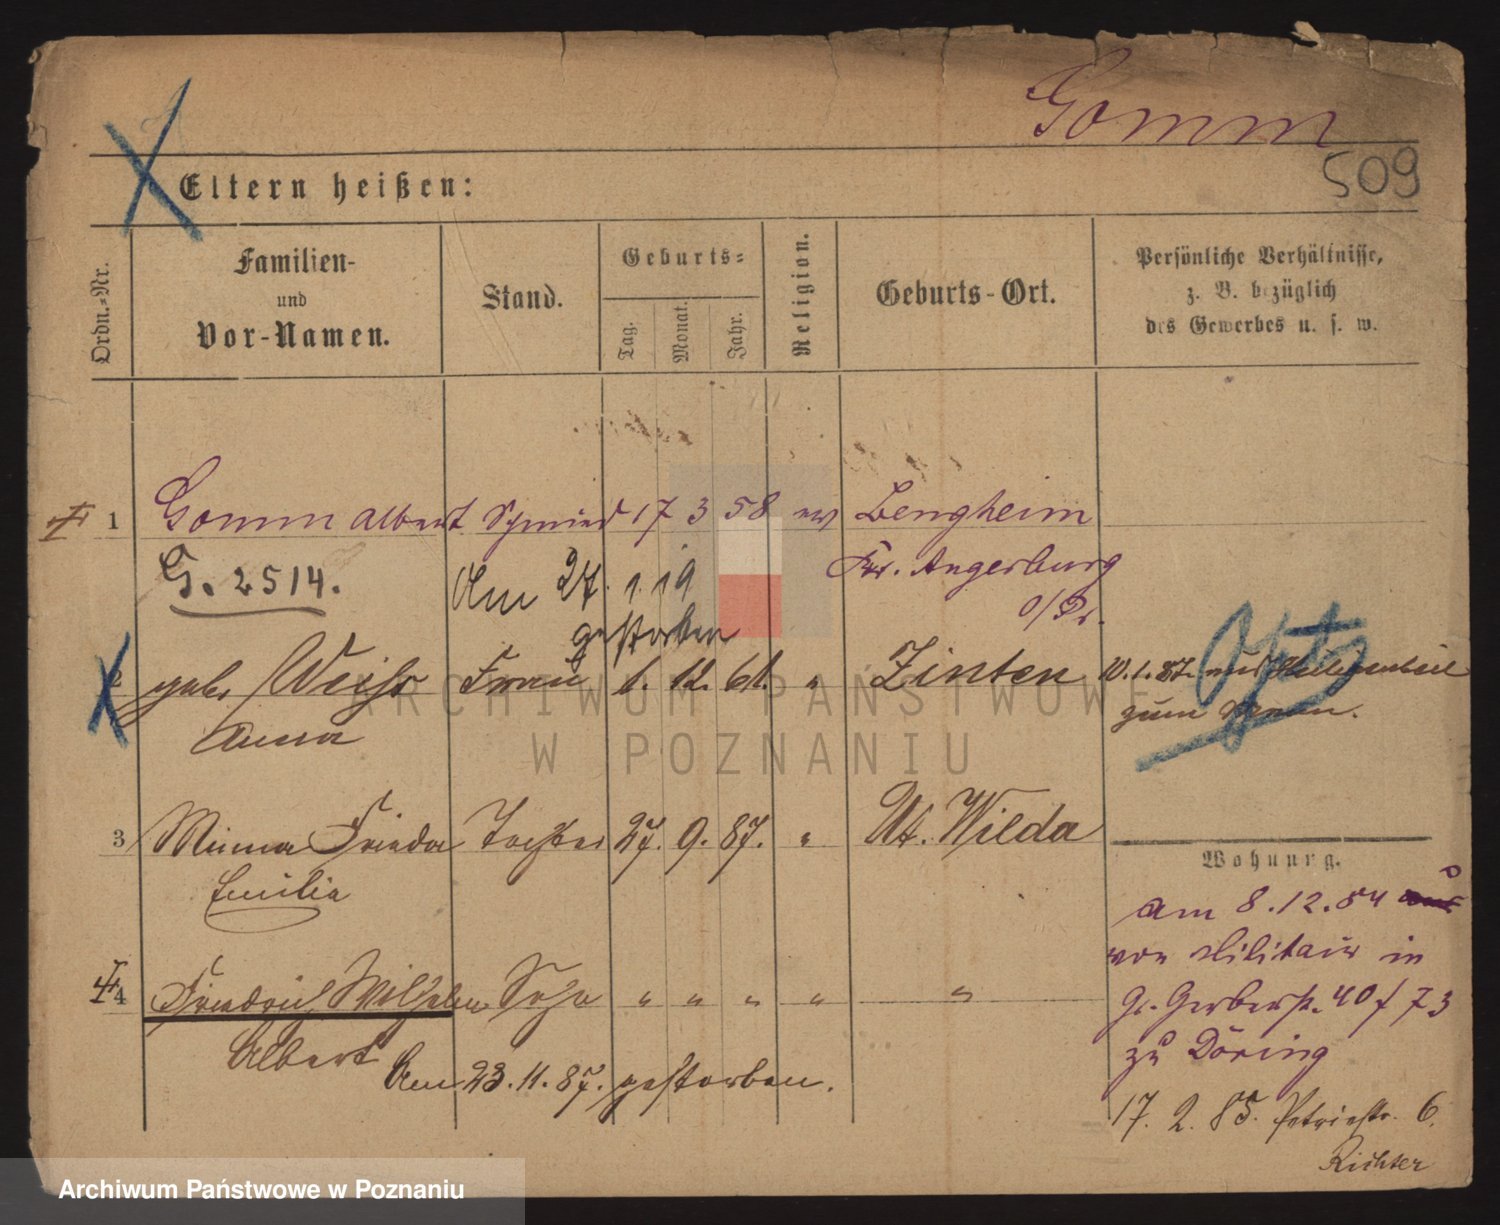 Gomm
509
Eltern heißen:
Ordn.-Nr.
Familien-
und
Vor-Namen.
Stand.
Geburts-
Tag.
Monat.
Jahr.
Religion.
Geburts-Ort.
Persönliche Verhältnisse,
z. B. bezüglich
des Gewerbes u. s. w.
1 Gomm Albert Schmied 17 3 58 ev Bengheim
Kr. Angerburg
O/Pr.
G. 2514.
Am 27. 1. 19
gestorben
2 geb. Weiß Frau 1. 12. 61. " Zinten
Anna
10.1.87. mit
zum
3 Minna Frieda Tochter 27. 9. 87. " St. Wilda
Emilie
4 Friedrich Wilhelm Sohn " " " " "
Albert
Am 23.11.87. gestorben.
Wohnung.
am 8.12.84
von Militair in
Gr. Gerberstr. 40 / 73
zu Döring
17. 2. 85. Petristr. 6.
Richter
ARCHIWUM PAŃSTWOWE
W POZNANIU
Archiwum Państwowe w Poznaniu